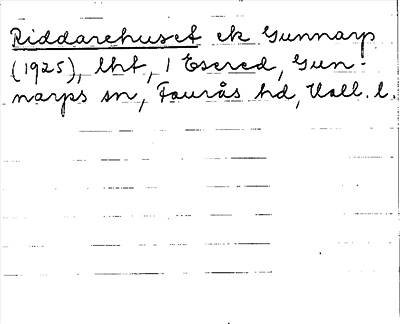 Riddarehuset ek Gunnarp
(1925), lht, 1 Esered, Gun-
narps sn, Faurås hd, Hall. l.